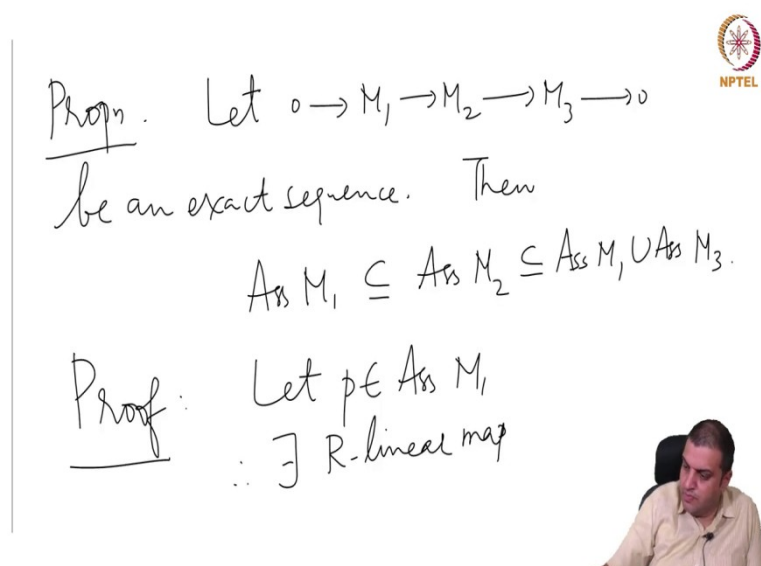 NPTEL
Propn. Let 0 → M₁ → M₂ → M₃ → 0
be an exact sequence. Then
Ass M₁ ⊆ Ass M₂ ⊆ Ass M₁ ∪ Ass M₃.
Proof: Let p ∈ Ass M₁
∴ ∃ R-linear map